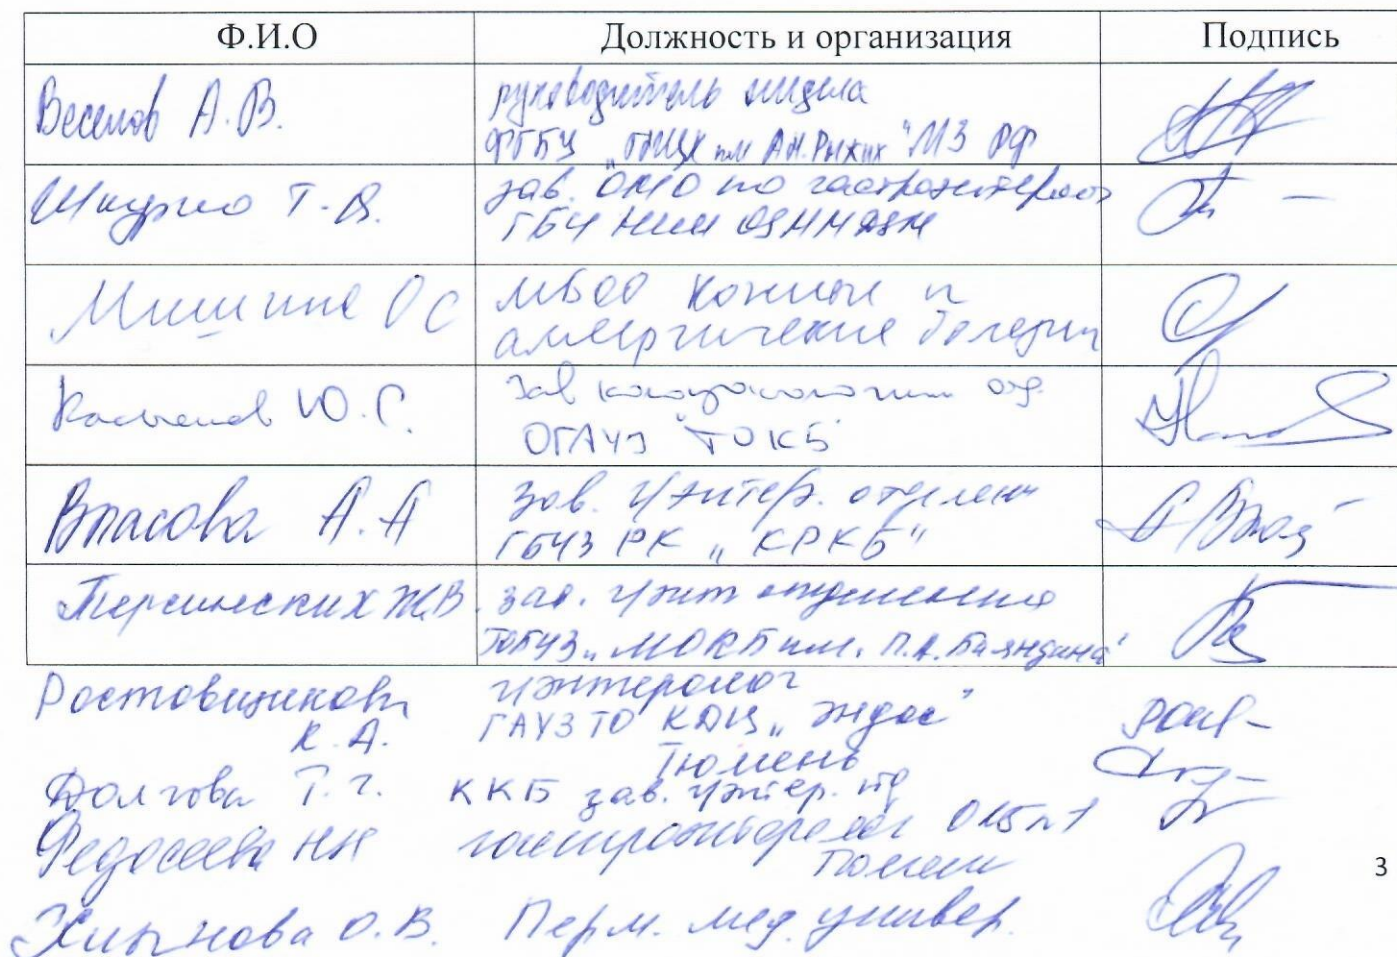 Ф.И.О Должность и организация Подпись
Веселов А.В. руководитель отдела
ФГБУ „ГНЦК им А.Н. Рыжих" МЗ РФ
Шкурко Т.В. зав. ОМО по гастроэнтерологии
ГБУ НИИ ОЗММ ДЗМ
Мишина ОС МБОО кожные и
аллергические болезни
Ю.С. зав колопрологич отд.
ОГАУЗ "ТОКБ"
Власова А.А зав. г/энтер. отделен
ГБУЗ РК „КРКБ"
Ж.В. зав. г/энт отделением
„МОКБ им. П.А. Баяндина"
Ростовщикова г/энтеролог
К.А. ГАУЗ ТО КДЦ „Эндос"
Тюмень
Долгова Т.Г. ККБ зав. г/энтер. отд
Федосеева НН гастроэнтеролог ОКБ №1
Тюмень
3
Хлынова О.В. Перм. мед. универ.